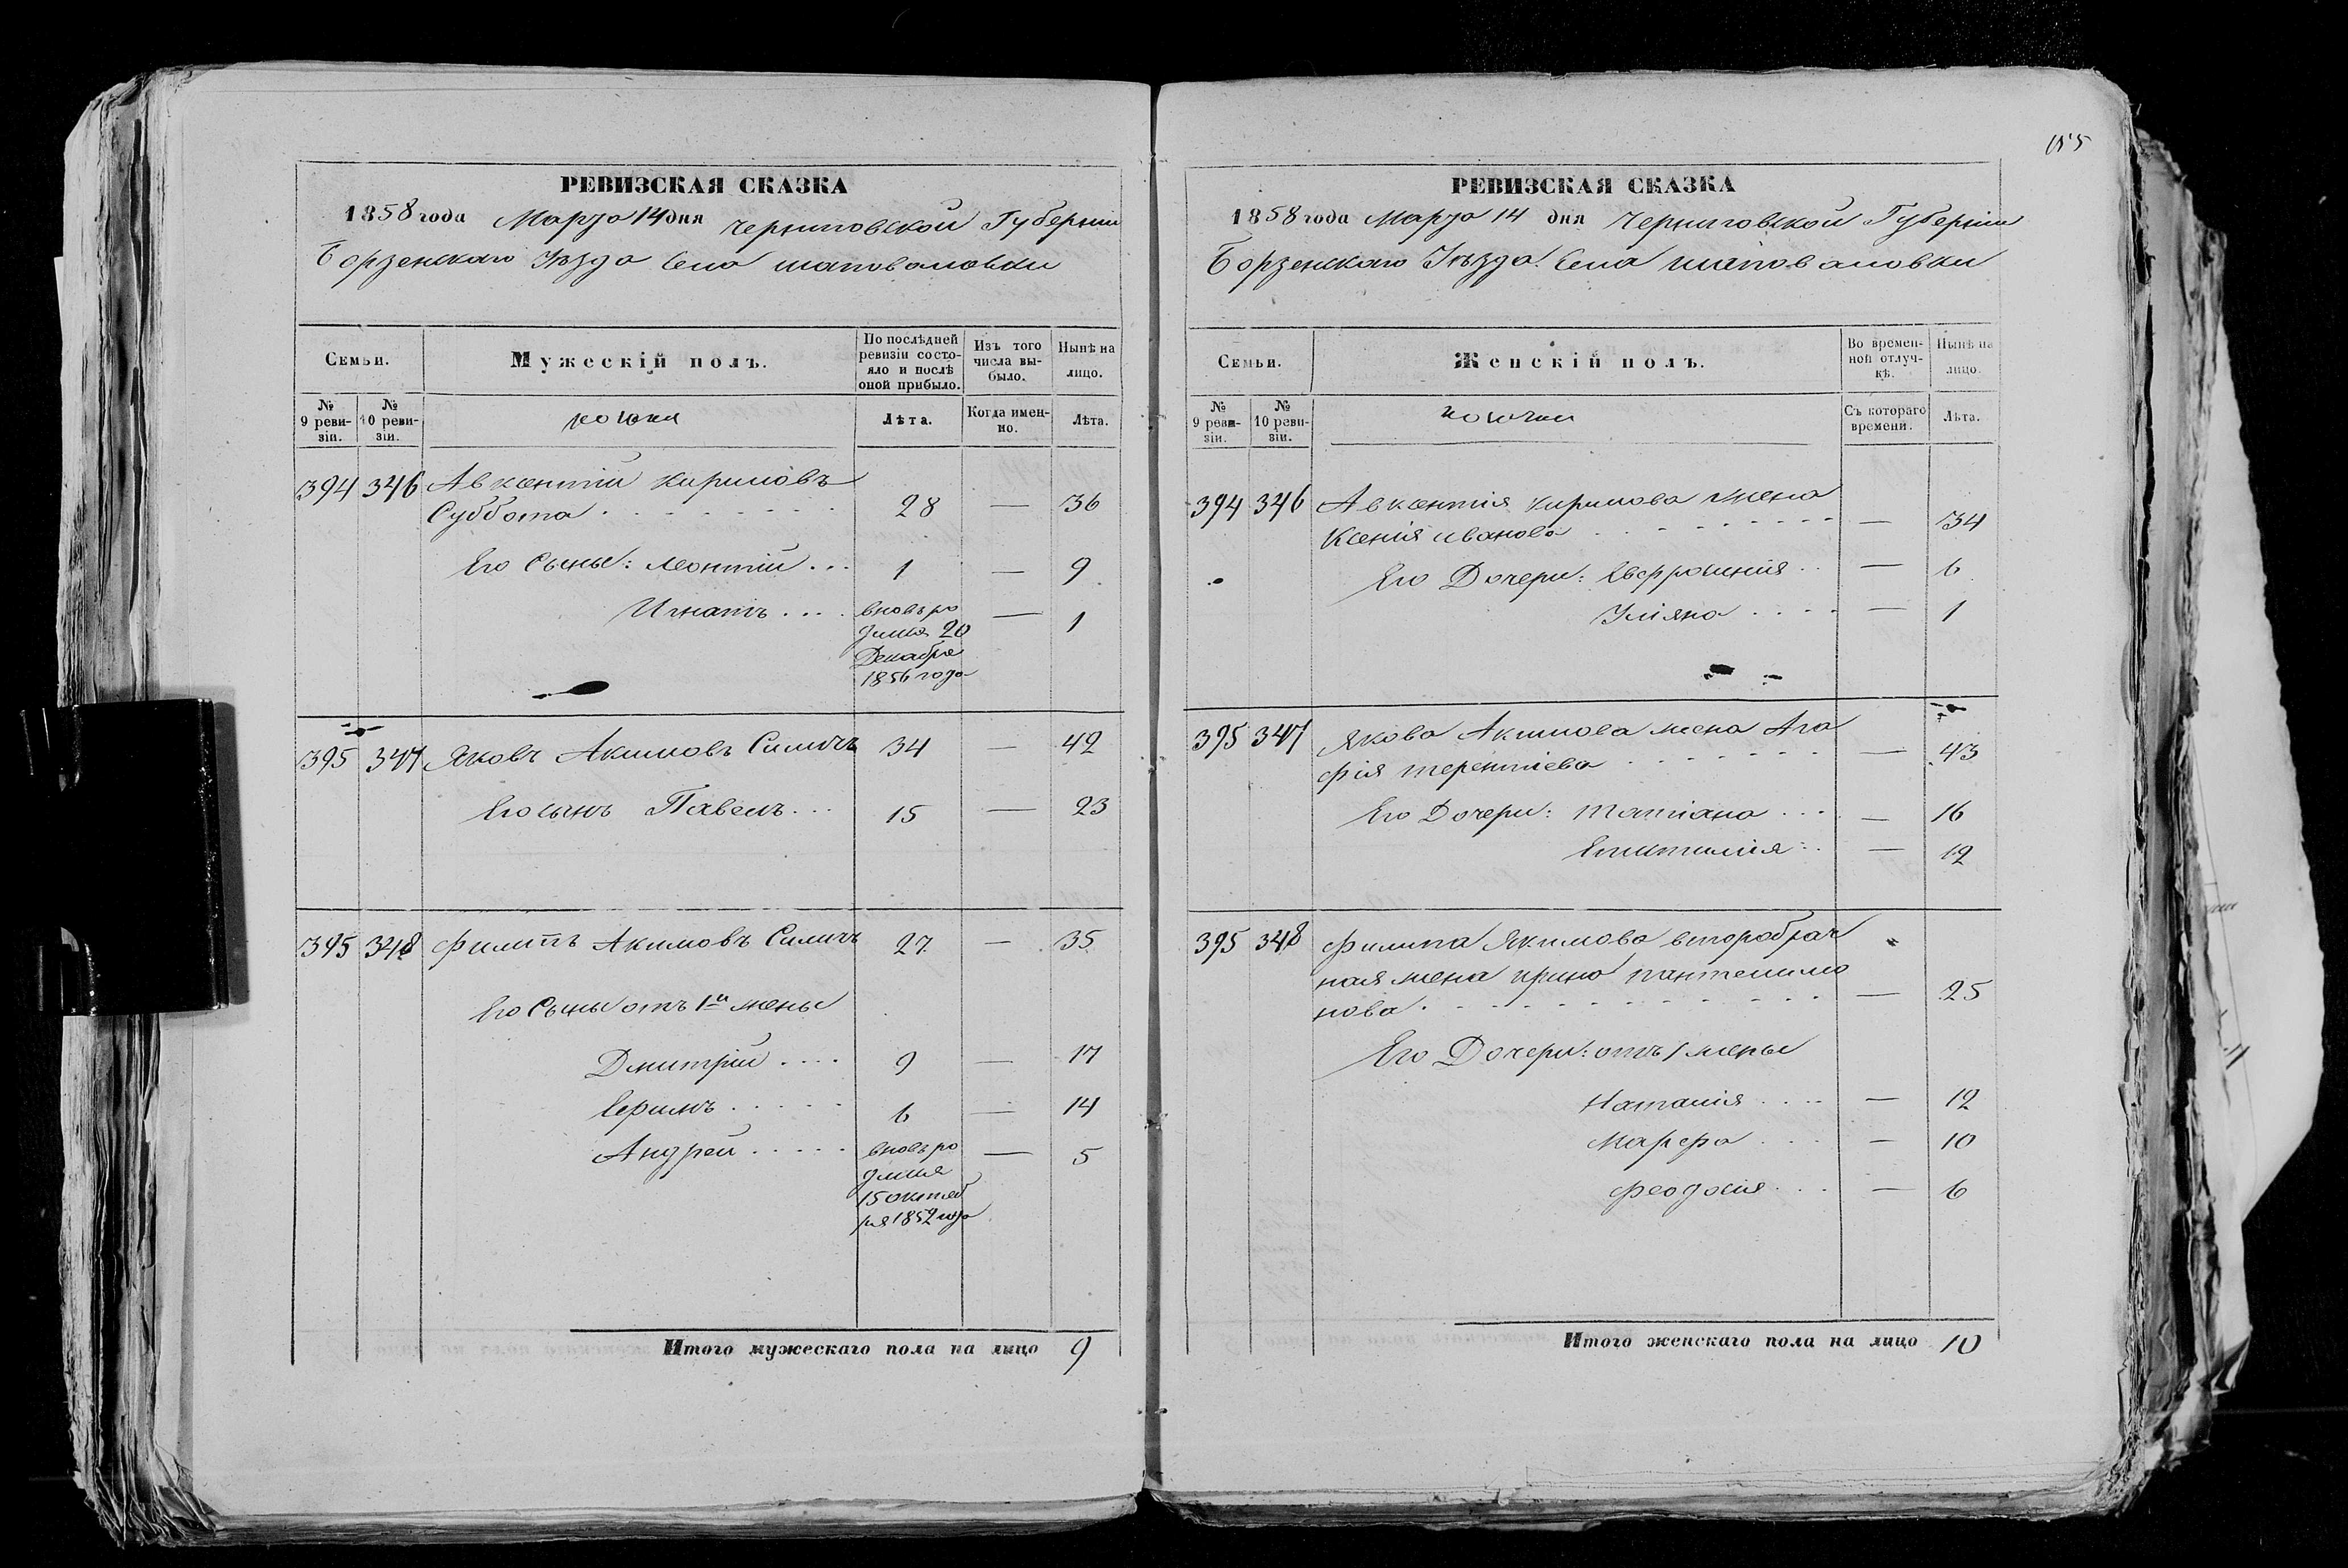 РЕВИЗСКАЯ СКАЗКА
1858 года Марта 14 дня Черниговской Губернии
Борзенскаго Уѣзда Села Шаповаловки
Семьи.
Мужескій полъ.
По послѣдней ревизіи состо-
яло и послѣ
оной прибыло.
Изъ того
числа вы-
было.
Нынѣ на
лицо.
№
9 реви-
зіи.
№
10 реви-
зіи.
Лѣта.
Когда имен-
но.
Лѣта.
394 346 Авксентій Кириловъ
Суббота 28 — 36
Его Сыны: Леонтій 1 — 9
Игнатъ вновь ро — 1
дился 20
Декабря
1856 года
395 347 Яковъ Акимовъ Силичъ 34 — 42
Его сынъ Павелъ 15 — 23
395 348 Филиппъ Акимовъ Силичъ 27 — 35
Его Сыны отъ 1й жены
Дмитрій 9 — 17
Ефимъ 6 — 14
Андрей вновь ро — 5
дился
15 октяб
ря 1852 года
Итого мужескаго пола на лицо 9
155
РЕВИЗСКАЯ СКАЗКА
1858 года Марта 14 дня Черниговской Губерніи
Борзенскаго Уѣзда Села Шаповаловки
Семьи.
Женскій полъ.
Во времен-
ной отлуч-
кѣ.
Нынѣ на
лицо.
№
9 реви-
зіи.
№
10 реви-
зіи.
Съ котораго
времени.
Лѣта.
394 346 Авксентія Кирилова жена
Ксенія Иванова — 34
Его Дочери: Евфросинія — 6
Уліяна — 1
395 347 Якова Акимова жена Ага
фія Терентіева — 43
Его Дочери: Татіана — 16
Епистимія — 12
395 348 Филипа Якимова второбрач
ная жена Ирина Пантелимо
нова — 25
Его Дочери: отъ 1 жены
Наталія — 12
Марфа — 10
Феодосія — 6
Итого женскаго пола на лицо 10